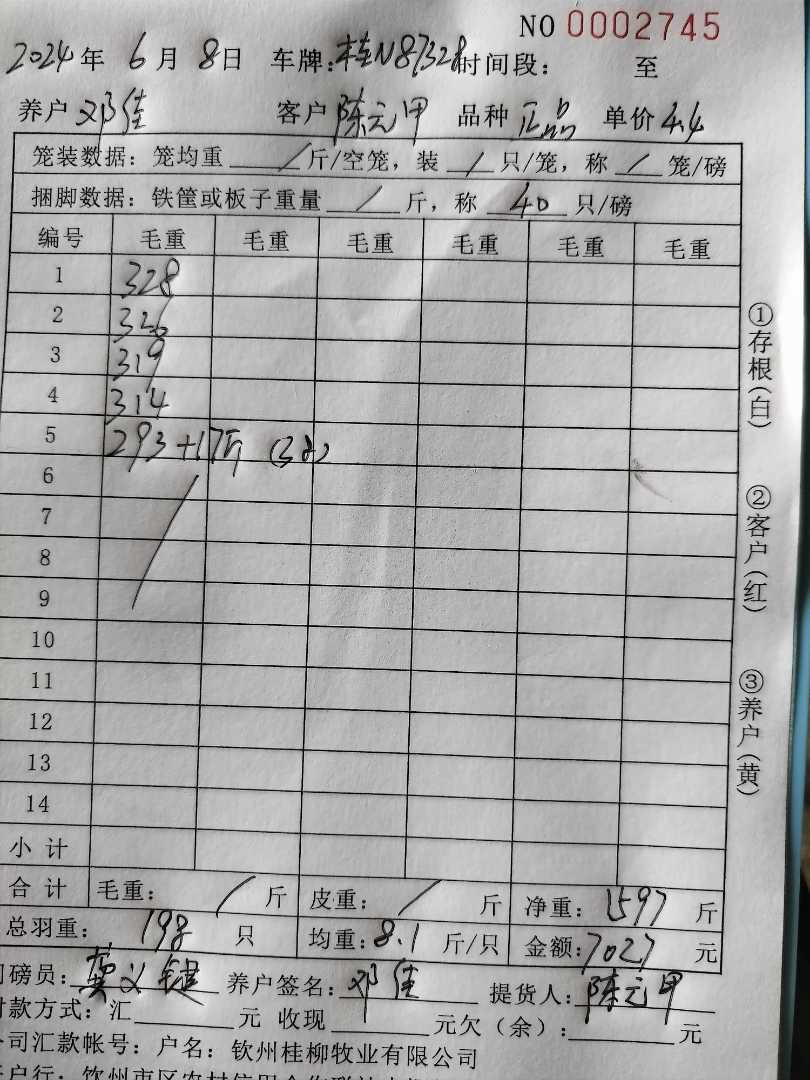 NO 0002745
2024年 6月 8日 车牌:桂N87328 时间段: 至
养户 邓佳 客户 陈元甲 品种 正品 单价 4.4
笼装数据: 笼均重 / 斤/空笼, 装 / 只/笼, 称 / 笼/磅
捆脚数据: 铁筐或板子重量 / 斤, 称 40 只/磅
编号 毛重 毛重 毛重 毛重 毛重 毛重
1 328
2 326
3 319
4 314
5 293+17斤 (3只)
6
7
8
9
10
11
12
13
14
小计
合计 毛重: / 斤 皮重: / 斤 净重: 1597 斤
总羽重: 198 只 均重: 8.1 斤/只 金额: 7027 元
司磅员: 龚义键 养户签名: 邓佳 提货人: 陈元甲
付款方式: 汇 元 收现 元欠(余): 元
公司汇款帐号: 户名: 钦州桂柳牧业有限公司
开户行: 钦州市区农村信用合作联社
①存根(白)
②客户(红)
③养户(黄)